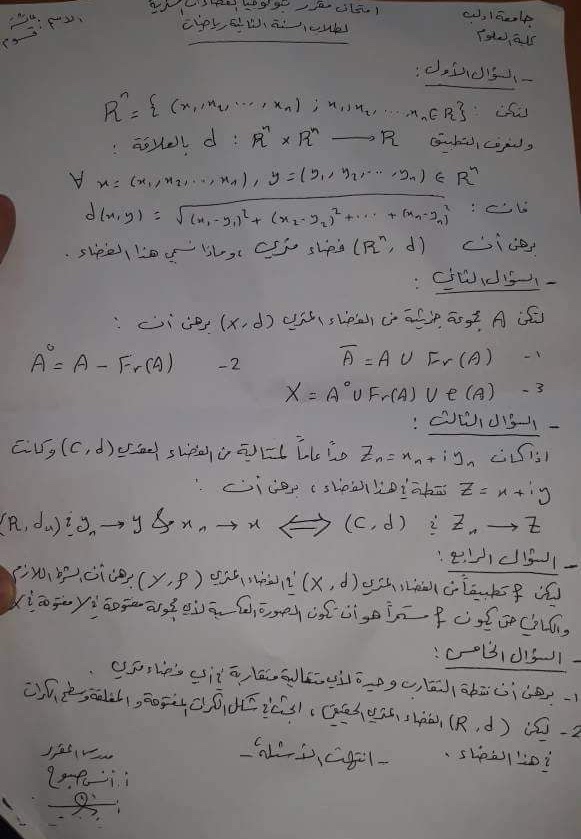 جامعة ادلب
كلية العلوم
امتحان مقرر تبولوجيا الفضاءات المترية
لطلاب السنة الثانية رياضيات
الاسم:
- السؤال الأول:
لتكن: R^n = { (x₁, x₂, ..., xₙ) ; x₁, x₂, ..., xₙ ∈ R }
ولنعرف التطبيق d : R^n × R^n → R بالعلاقة:
∀ x = (x₁, x₂, ..., xₙ), y = (y₁, y₂, ..., yₙ) ∈ R^n
فان: d(x,y) = √((x₁-y₁)² + (x₂-y₂)² + ... + (xₙ-yₙ)²)
برهن أن (R^n, d) فضاء متري، وماذا نسمي هذا الفضاء.
- السؤال الثاني:
لتكن A مجموعة جزئية من الفضاء المتري (X, d) برهن أن:
1- Ā = A ∪ Fr(A)
2- A° = A - Fr(A)
3- X = A° ∪ Fr(A) ∪ e(A)
- السؤال الثالث:
اذا كان Zₙ = xₙ + i yₙ حداً عاماً لمتتالية من الفضاء العقدي (C, d) وكانت
Z = x + iy نقطة في هذا الفضاء، برهن أن:
Zₙ → Z في (C, d) ⟺ xₙ → x و yₙ → y في (R, dᵤ)
- السؤال الرابع:
ليكن f تطبيقاً من الفضاء المتري (X, d) في الفضاء المتري (Y, ρ) برهن أن الشرط اللازم
والكافي حتى يكون f مستمراً هو أن تكون الصورة العكسية لأي مجموعة مفتوحة في Y مفتوحة في X
- السؤال الخامس:
1- برهن أن نقطة التقارب وحيدة لأي متتالية متقاربة في أي فضاء متري.
2- ليكن (R, d) الفضاء المتري الحقيقي، ابحث في شكل الكرات المفتوحة والمغلقة وسطح الكرات
في هذا الفضاء.
- انتهت الأسئلة -
مدرس المقرر
أ. أنس صبوح